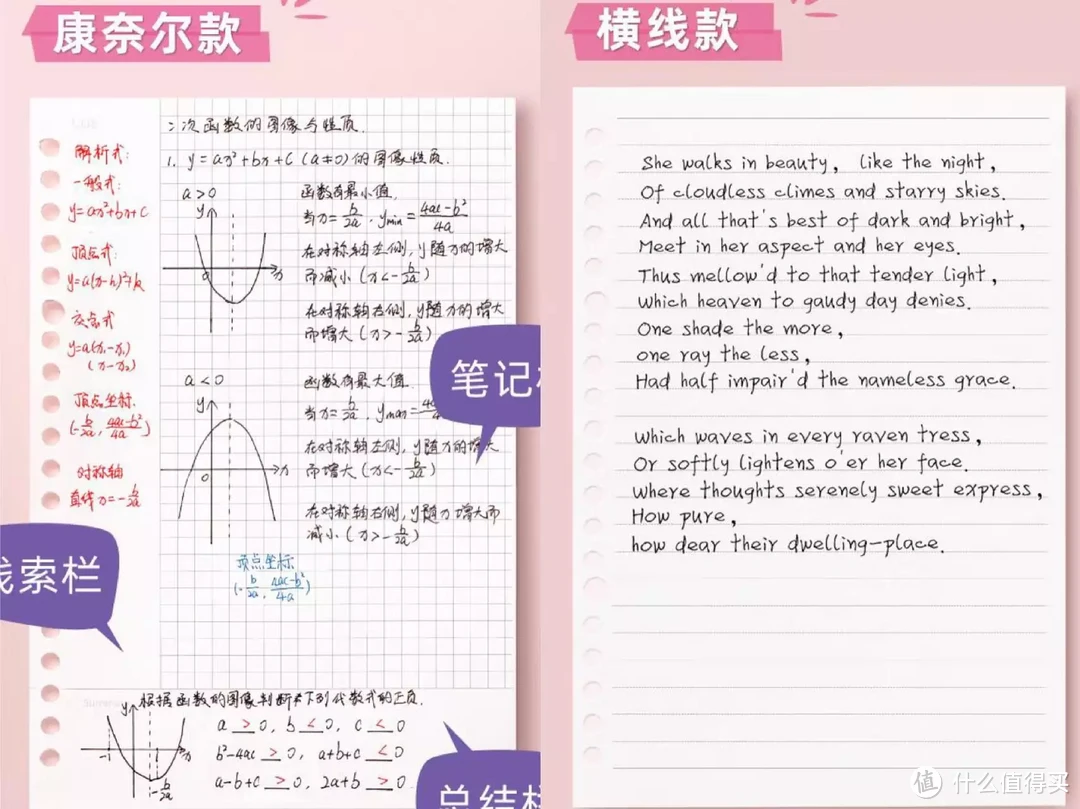 康奈尔款
二次函数的图像与性质.
1. y=ax²+bx+c (a≠0)的图像性质.
解析式:
一般式:
y=ax²+bx+c
顶点式:
y=a(x-h)²+k
交点式
y=a(x-x₁)
(x-x₂)
顶点坐标
(-b/2a, 4ac-b²/4a)
对称轴
直线x=-b/2a
a>0
y
x
0
函数有最小值.
当x=b/2a, ymin=4ac-b²/4a
在对称轴左侧,y随x的增大
而减小(x<-b/2a)
在对称轴右侧,y随x的增大
而增大(x>-b/2a)
a<0
y
x
0
函数有最大值.
当x=b/2a, ymax=
在对称轴左侧,y随x的增大
而增大(x<-b/2a)
在对称轴右侧,y随x增大而
减小(x>-b/2a)
顶点坐标
(-b/2a, 4ac-b²/4a)
笔记
索栏
根据函数的图像判断下列代数式的正负.
y
x
-1
1
-b/2a
a > 0, b < 0, c < 0
b²-4ac > 0, a+b+c < 0
a-b+c > 0, 2a+b > 0.
总结
横线款
She walks in beauty, like the night,
Of cloudless climes and starry skies.
And all that's best of dark and bright,
Meet in her aspect and her eyes.
Thus mellow'd to that tender light,
Which heaven to gaudy day denies.
One shade the more,
one ray the less,
Had half impair'd the nameless grace.
Which waves in every raven tress,
Or softly lightens o'er her face.
Where thoughts serenely sweet express,
How pure,
how dear their dwelling-place.
值 什么值得买